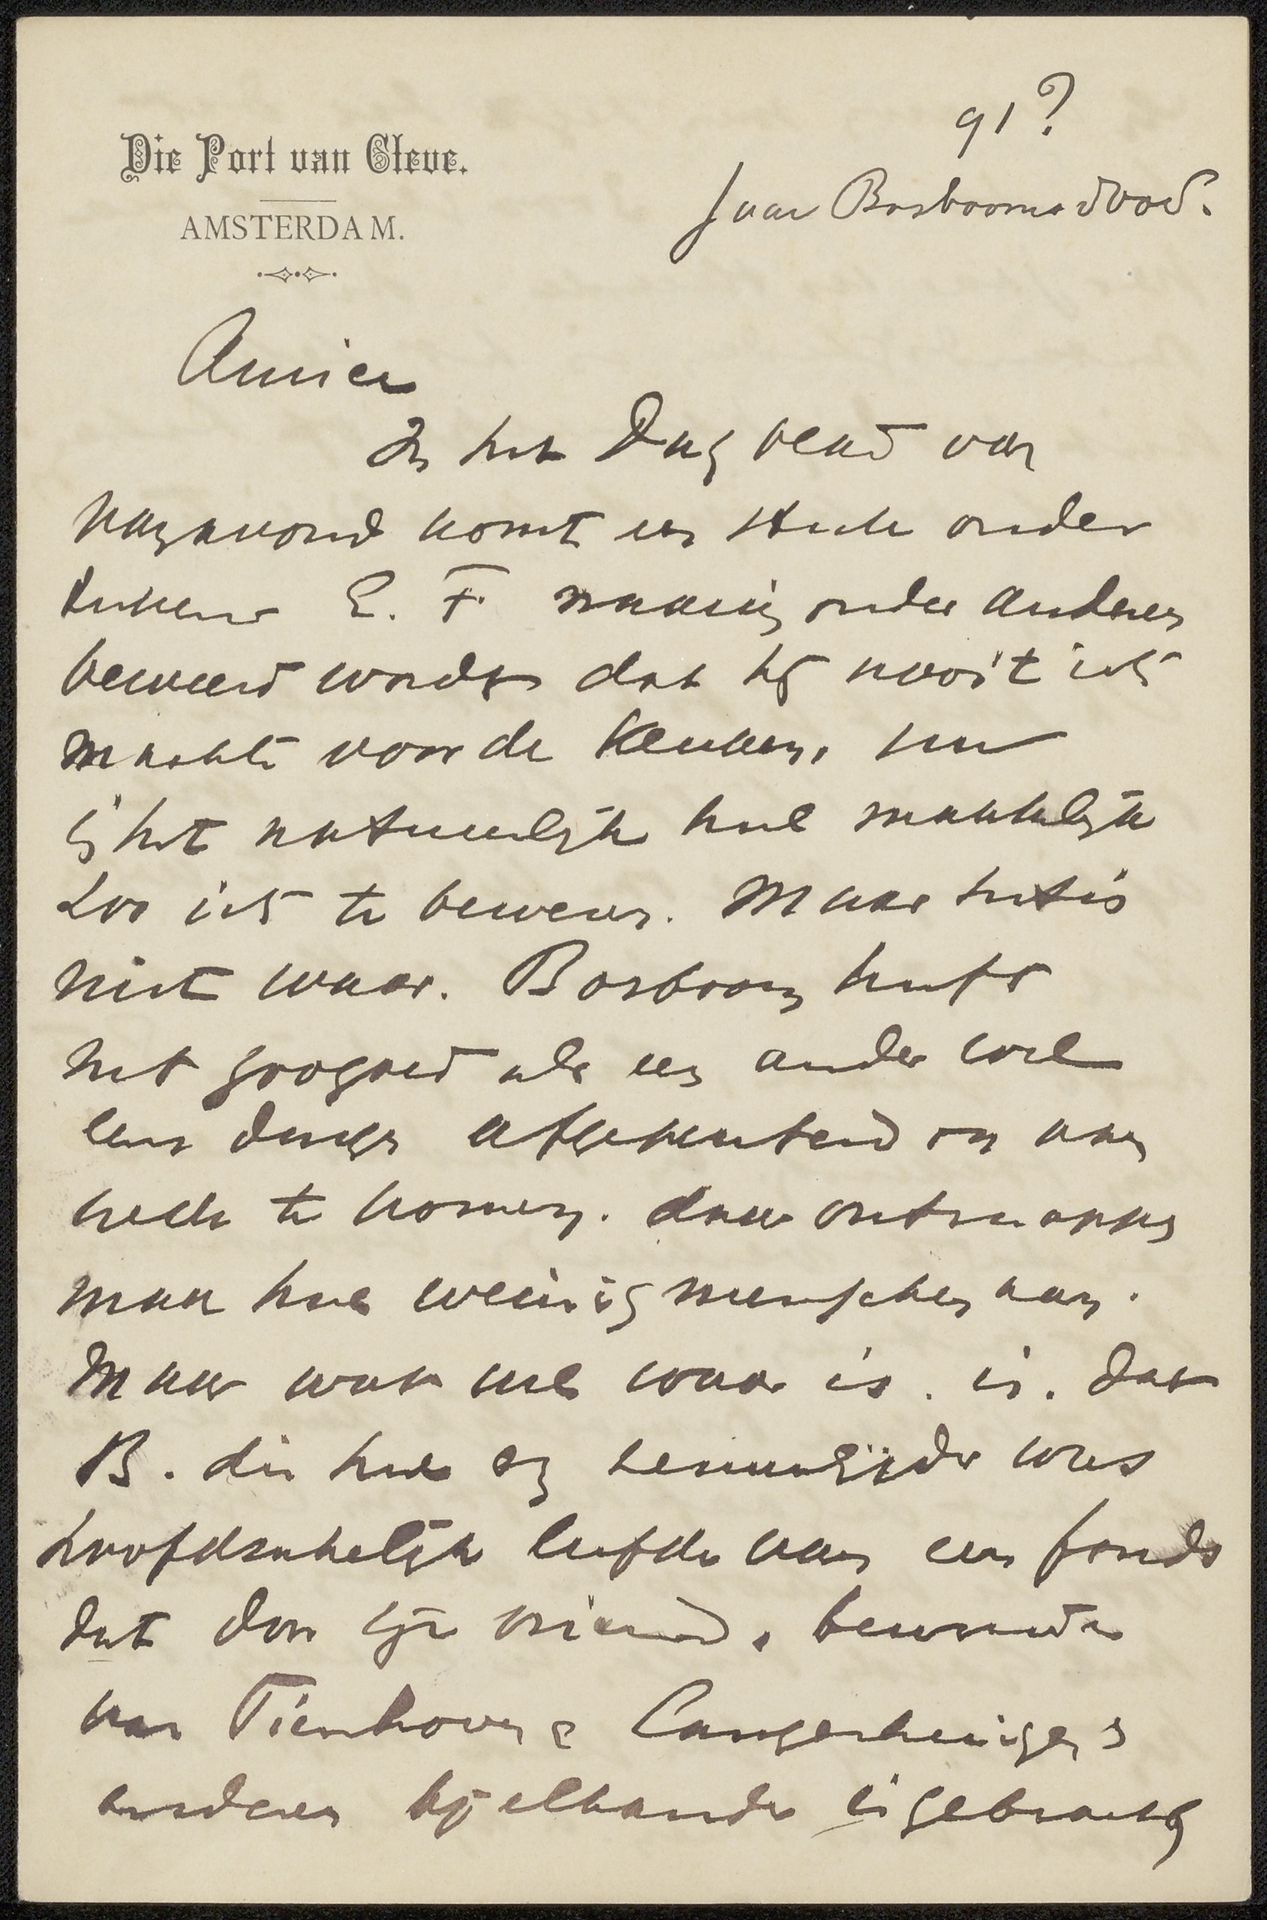 91?
Die Port van Cleve.
Jaar Bosboom dood.
AMSTERDAM.
Amice
In het Dagblad van
van avond komt een stuk onder
E. F. waarin onder anderen
beweerd wordt dat hij nooit iets
maakte voor de keuken, nu
is het natuurlijk heel makkelijk
zoo iets te beweren. Maar het is
niet waar. Bosboom heeft
net zoogoed als een ander wel
eens dingen om aan
te komen. daar ontsnappen
maar heel weinig menschen aan.
Maar wat wel waar is. is. dat
B. die heel was
hoofdzakelijk leefde van een fonds
dat door zijn vriend, bewonderaar
van Tienhoven & Langerhuizen &
anderen bij elkander is gebracht